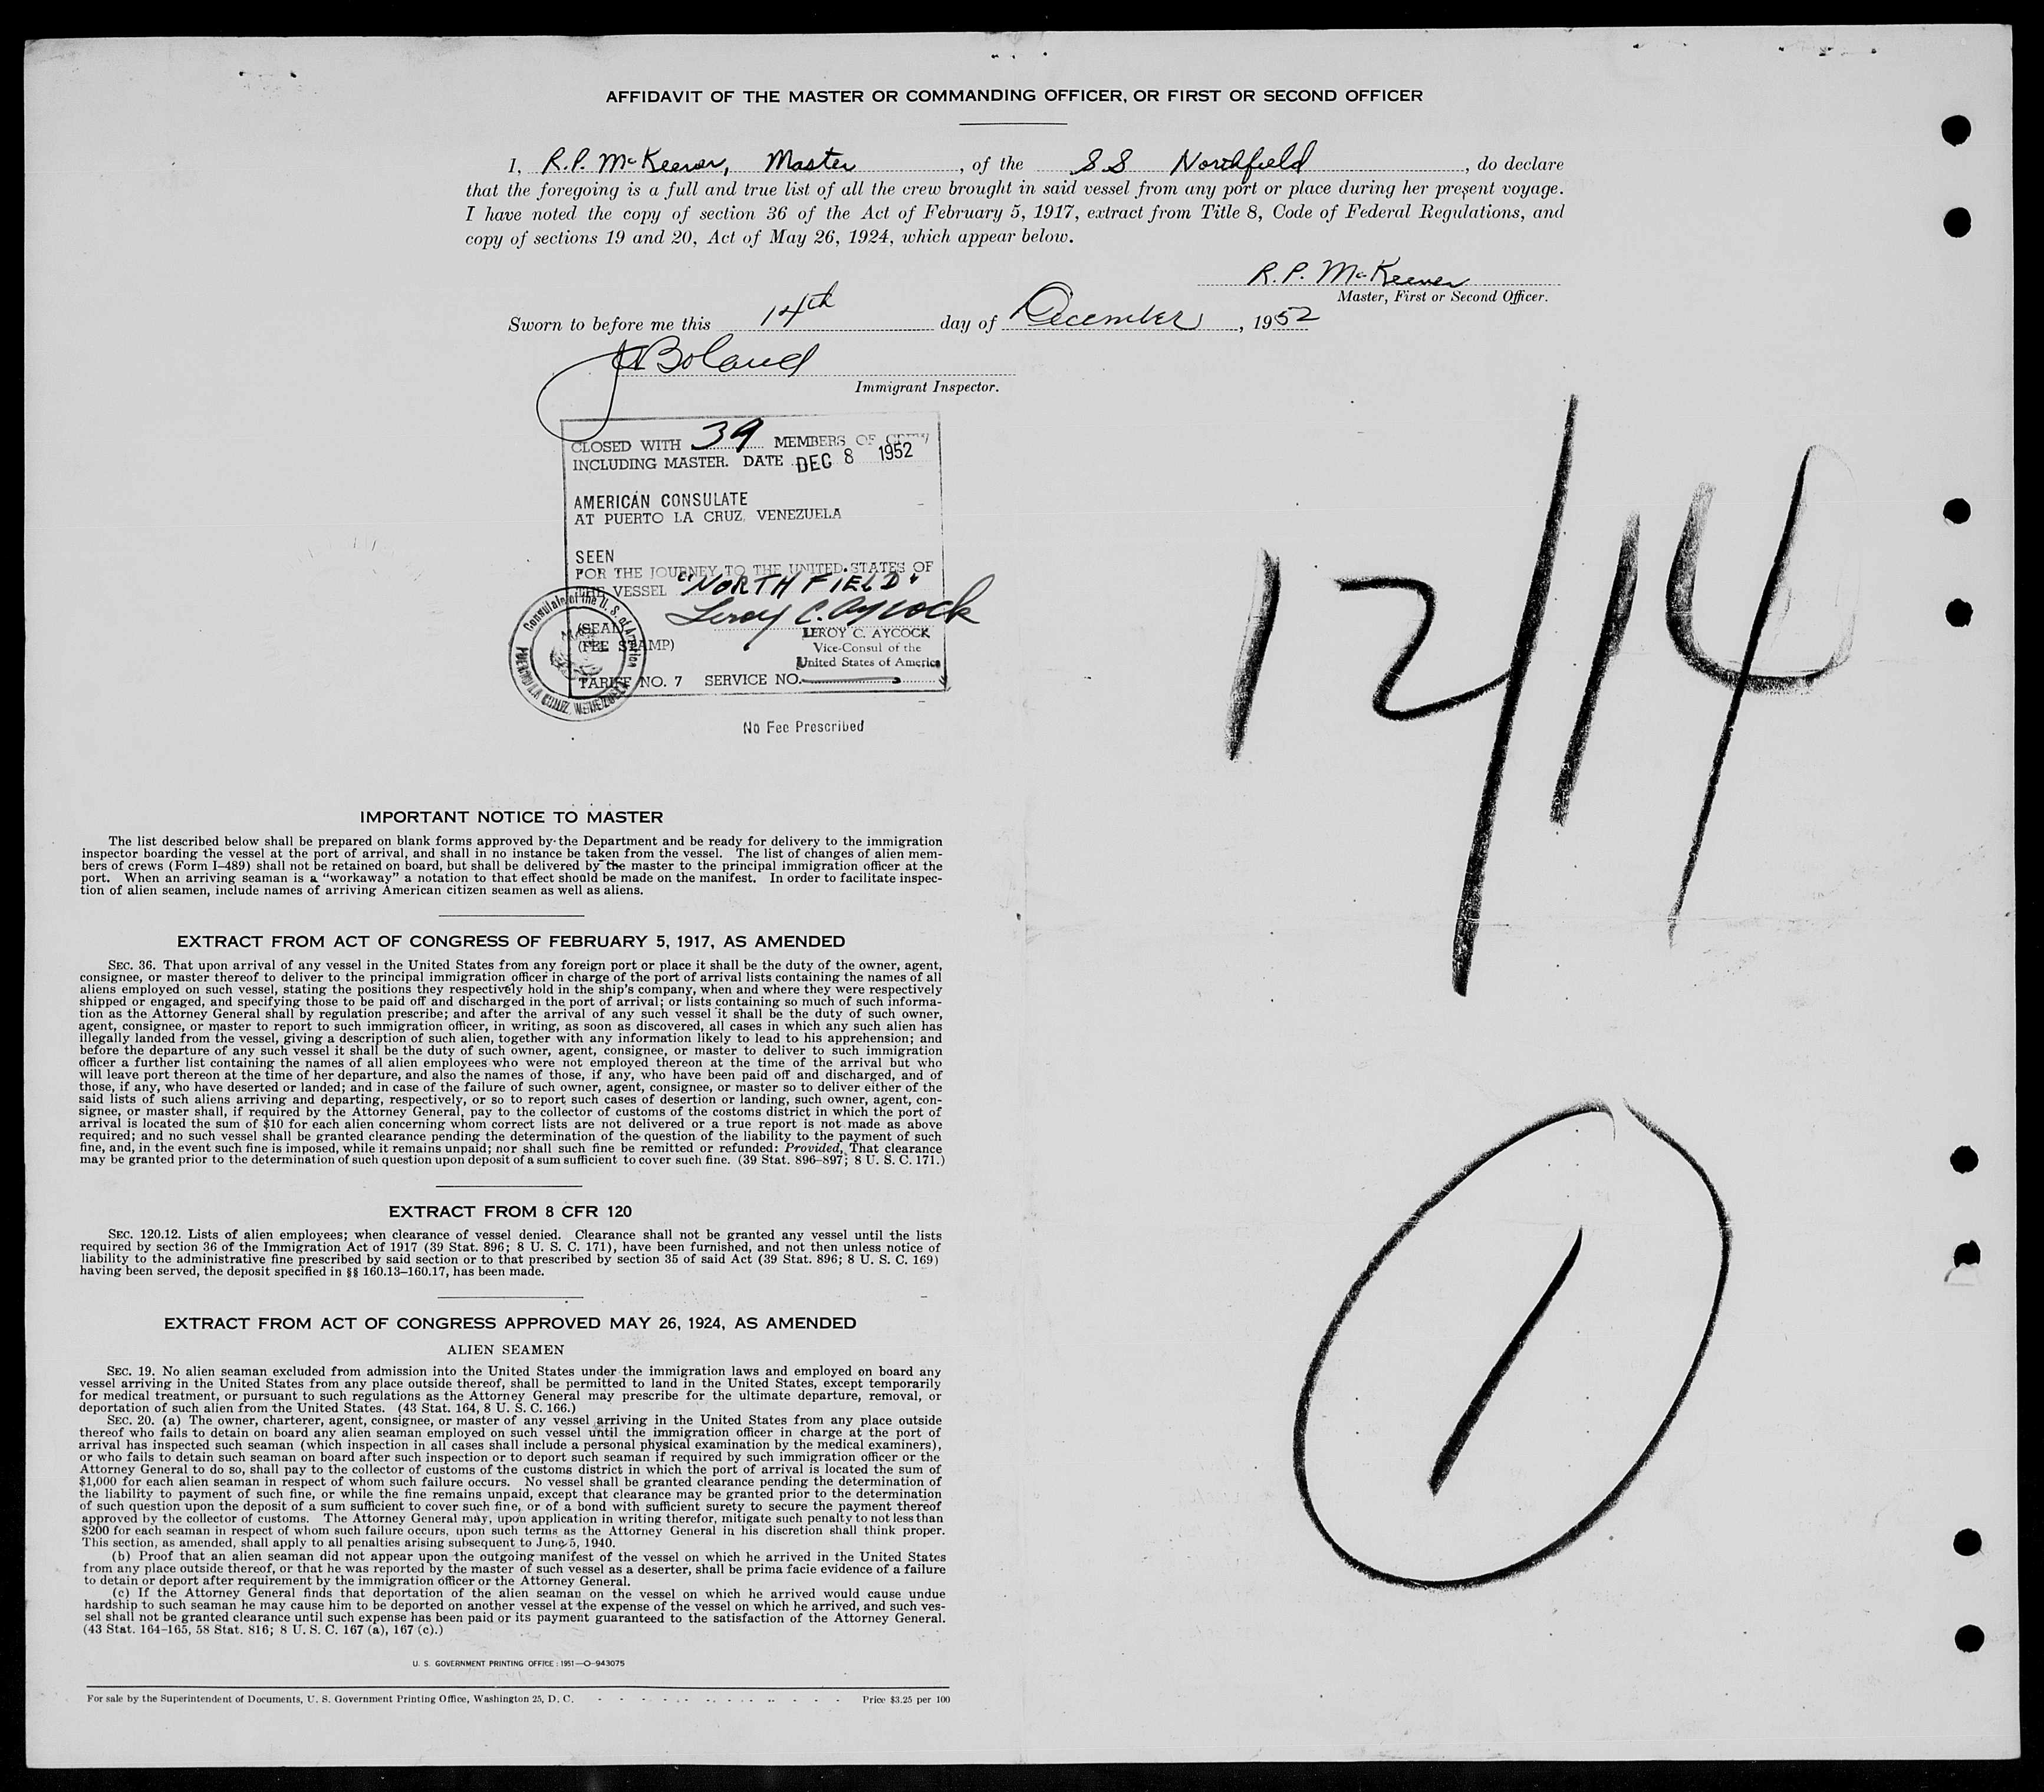 AFFIDAVIT OF THE MASTER OR COMMANDING OFFICER, OR FIRST OR SECOND OFFICER
I, R.P. McKeever, Master, of the SS Northfield, do declare
that the foregoing is a full and true list of all the crew brought in said vessel from any port or place during her present voyage.
I have noted the copy of section 36 of the Act of February 5, 1917, extract from Title 8, Code of Federal Regulations, and
copy of sections 19 and 20, Act of May 26, 1924, which appear below.
R.P. McKeever
Master, First or Second Officer.
Sworn to before me this 14th day of December, 1952
Boland
Immigrant Inspector.
CLOSED WITH 39 MEMBERS OF CREW
INCLUDING MASTER. DATE DEC 8 1952
AMERICAN CONSULATE
AT PUERTO LA CRUZ, VENEZUELA
SEEN
FOR THE JOURNEY TO THE UNITED STATES OF
THE VESSEL "NORTHFIELD"
Leroy C. Aycock
(SEAL) LEROY C. AYCOCK
(FEE STAMP) Vice-Consul of the
United States of America
TARIFF NO. 7 SERVICE NO.
Consulate of the U. S. of America
PUERTO LA CRUZ, VENEZUELA
No Fee Prescribed
12/14
1
IMPORTANT NOTICE TO MASTER
The list described below shall be prepared on blank forms approved by the Department and be ready for delivery to the immigration
inspector boarding the vessel at the port of arrival, and shall in no instance be taken from the vessel. The list of changes of alien mem-
bers of crews (Form I–489) shall not be retained on board, but shall be delivered by the master to the principal immigration officer at the
port. When an arriving seaman is a "workaway" a notation to that effect should be made on the manifest. In order to facilitate inspec-
tion of alien seamen, include names of arriving American citizen seamen as well as aliens.
EXTRACT FROM ACT OF CONGRESS OF FEBRUARY 5, 1917, AS AMENDED
SEC. 36. That upon arrival of any vessel in the United States from any foreign port or place it shall be the duty of the owner, agent,
consignee, or master thereof to deliver to the principal immigration officer in charge of the port of arrival lists containing the names of all
aliens employed on such vessel, stating the positions they respectively hold in the ship's company, when and where they were respectively
shipped or engaged, and specifying those to be paid off and discharged in the port of arrival; or lists containing so much of such informa-
tion as the Attorney General shall by regulation prescribe; and after the arrival of any such vessel it shall be the duty of such owner,
agent, consignee, or master to report to such immigration officer, in writing, as soon as discovered, all cases in which any such alien has
illegally landed from the vessel, giving a description of such alien, together with any information likely to lead to his apprehension; and
before the departure of any such vessel it shall be the duty of such owner, agent, consignee, or master to deliver to such immigration
officer a further list containing the names of all alien employees who were not employed thereon at the time of the arrival but who
will leave port thereon at the time of her departure, and also the names of those, if any, who have been paid off and discharged, and of
those, if any, who have deserted or landed; and in case of the failure of such owner, agent, consignee, or master so to deliver either of the
said lists of such aliens arriving and departing, respectively, or so to report such cases of desertion or landing, such owner, agent, con-
signee, or master shall, if required by the Attorney General, pay to the collector of customs of the costoms district in which the port of
arrival is located the sum of $10 for each alien concerning whom correct lists are not delivered or a true report is not made as above
required; and no such vessel shall be granted clearance pending the determination of the question of the liability to the payment of such
fine, and, in the event such fine is imposed, while it remains unpaid; nor shall such fine be remitted or refunded: Provided, That clearance
may be granted prior to the determination of such question upon deposit of a sum sufficient to cover such fine. (39 Stat. 896–897; 8 U. S. C. 171.)
EXTRACT FROM 8 CFR 120
SEC. 120.12. Lists of alien employees; when clearance of vessel denied. Clearance shall not be granted any vessel until the lists
required by section 36 of the Immigration Act of 1917 (39 Stat. 896; 8 U. S. C. 171), have been furnished, and not then unless notice of
liability to the administrative fine prescribed by said section or to that prescribed by section 35 of said Act (39 Stat. 896; 8 U. S. C. 169)
having been served, the deposit specified in §§ 160.13–160.17, has been made.
EXTRACT FROM ACT OF CONGRESS APPROVED MAY 26, 1924, AS AMENDED
ALIEN SEAMEN
SEC. 19. No alien seaman excluded from admission into the United States under the immigration laws and employed on board any
vessel arriving in the United States from any place outside thereof, shall be permitted to land in the United States, except temporarily
for medical treatment, or pursuant to such regulations as the Attorney General may prescribe for the ultimate departure, removal, or
deportation of such alien from the United States. (43 Stat. 164, 8 U. S. C. 166.)
SEC. 20. (a) The owner, charterer, agent, consignee, or master of any vessel arriving in the United States from any place outside
thereof who fails to detain on board any alien seaman employed on such vessel until the immigration officer in charge at the port of
arrival has inspected such seaman (which inspection in all cases shall include a personal physical examination by the medical examiners),
or who fails to detain such seaman on board after such inspection or to deport such seaman if required by such immigration officer or the
Attorney General to do so, shall pay to the collector of customs of the customs district in which the port of arrival is located the sum of
$1,000 for each alien seaman in respect of whom such failure occurs. No vessel shall be granted clearance pending the determination of
the liability to payment of such fine, or while the fine remains unpaid, except that clearance may be granted prior to the determination
of such question upon the deposit of a sum sufficient to cover such fine, or of a bond with sufficient surety to secure the payment thereof
approved by the collector of customs. The Attorney General may, upon application in writing therefor, mitigate such penalty to not less than
$200 for each seaman in respect of whom such failure occurs, upon such terms as the Attorney General in his discretion shall think proper.
This section, as amended, shall apply to all penalties arising subsequent to June 5, 1940.
(b) Proof that an alien seaman did not appear upon the outgoing manifest of the vessel on which he arrived in the United States
from any place outside thereof, or that he was reported by the master of such vessel as a deserter, shall be prima facie evidence of a failure
to detain or deport after requirement by the immigration officer or the Attorney General.
(c) If the Attorney General finds that deportation of the alien seaman on the vessel on which he arrived would cause undue
hardship to such seaman he may cause him to be deported on another vessel at the expense of the vessel on which he arrived, and such ves-
sel shall not be granted clearance until such expense has been paid or its payment guaranteed to the satisfaction of the Attorney General.
(43 Stat. 164–165, 58 Stat. 816; 8 U. S. C. 167 (a), 167 (c).)
U. S. GOVERNMENT PRINTING OFFICE : 1951—O-943075
For sale by the Superintendent of Documents, U. S. Government Printing Office, Washington 25, D. C. - - - - - - - - - - - Price $3.25 per 100